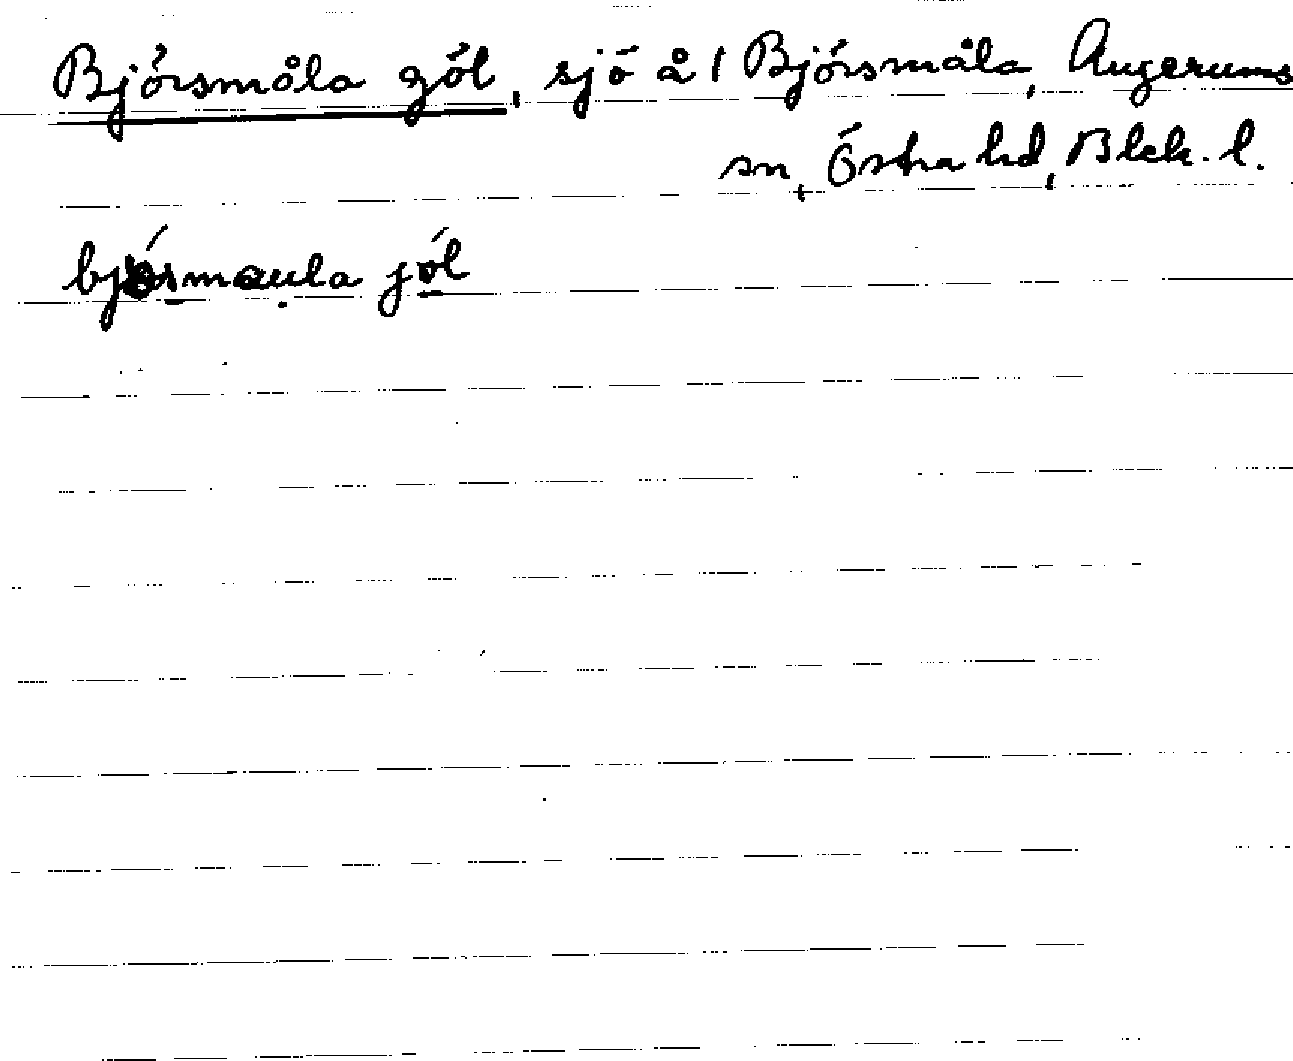 Bjórsmåla gól, sjó å 1 Bjórsmåla, Augerums
sn, Óstra hd, Blek. l.
bjórmaula jól